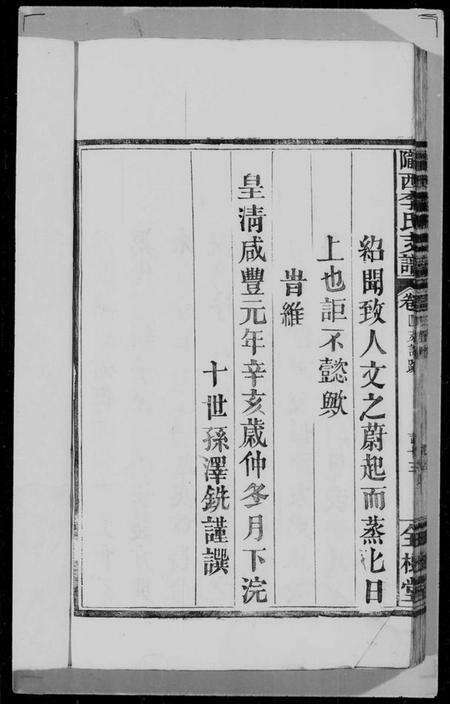 紹聞致人文之蔚起而蒸化日
上也詎不懿歟
旹維
皇清咸豐元年辛亥歲仲冬月下浣
十世孫澤銑謹譔
隴西李氏支譜
卷